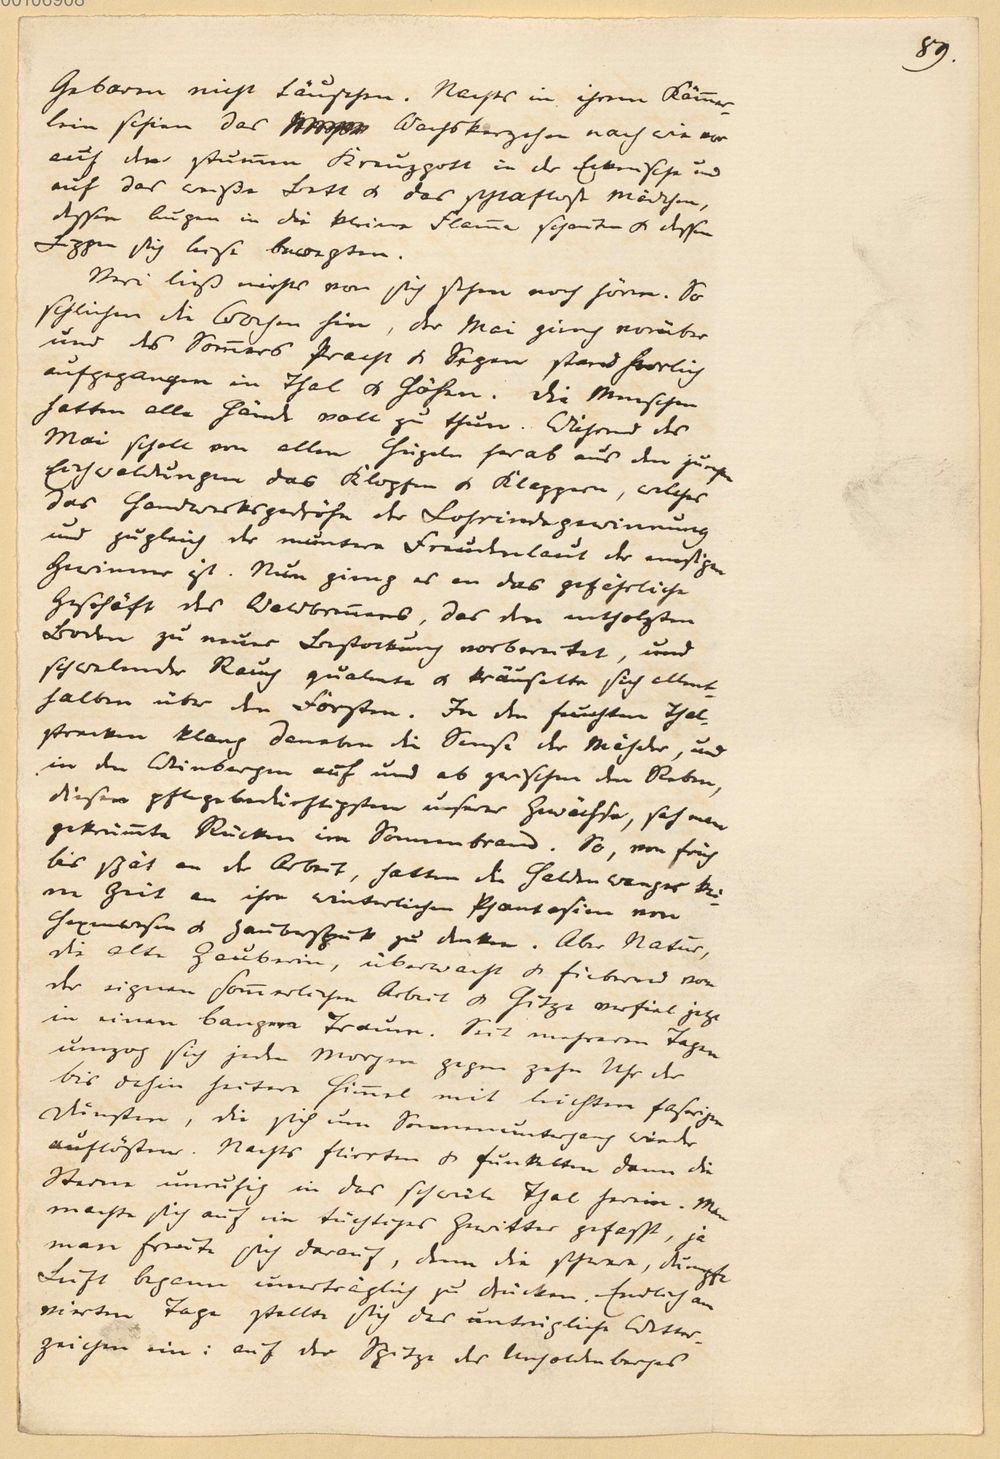 00106908
89.
Gebaren nicht täuschen. Nachts in ihrem Käm̄er-
lein schien das Wachskerzchen nach wie vor
auf den stum̄en Kreuzgott in der Eckenische und
auf das weiße Bett & das schlaflose Mädchen,
dessen Augen in die kleine Flam̄e schauten & dessen
Lippen sich leise bewegten.
Veri ließ nichts von sich sehen noch hören. So
schlichen die Wochen hin, der Mai ging vorüber
und des Som̄ers Pracht & Segen stand herrlich
aufgegangen in Thal & Höhen. Die Menschen
hatten alle Hände voll zu thun. Während des
Mai scholl von allen Hügeln herab aus den jungen
Eichwaldungen das Klopfen & Klappern, welches
das Handwerksgedröhn der Lohrindegewinnung
und zugleich der muntere Freudenlaut der emsigen
Gewinner ist. Nun ging es an das gefährliche
Geschäft des Waldbren̄ens, das den entholzten
Boden zu neuer Bestockung vorbereitet, und
schwelender Rauch qualmte & kräuselte sich allent-
halben über den Forsten. In den feuchten Thal-
strecken klang daneben die Sense der Mähder, und
in den Weinbergen auf und ab zwischen den Reben,
diesen pflegebedürftigsten unserer Gewächse, sah man
gekrüm̄te Rücken im Sonnenbrand. So, von früh
bis spät an der Arbeit, hatten die Haldenwanger kei-
ne Zeit an ihre winterlichen Phantasien von
Hexenwesen & Zauberspuk zu denken. Aber Natur,
die alte Zauberin, überwacht & fiebernd von
der eignen som̄erlichen Arbeit & Hitze verfiel jetzt
in einen bangen Traum. Seit mehreren Tagen
umzog sich jeden Morgen gegen zehn Uhr der
bis dahin heitere Him̄el mit leichten fasrigen
Dünsten, die sich um Sonnenuntergang wieder
auflösten. Nachts flirrten & funkelten dann die
Sterne unruhig in das schwüle Thal herein. Man
machte sich auf ein tüchtiges Gewitter gefasst, ja
man freute sich darauf, denn die schwere, dumpfe
Luft begann unerträglich zu drücken. Endlich am
vierten Tage stellte sich das untrügliche Wetter-
zeichen ein: auf der Spitze des Unholdenberges